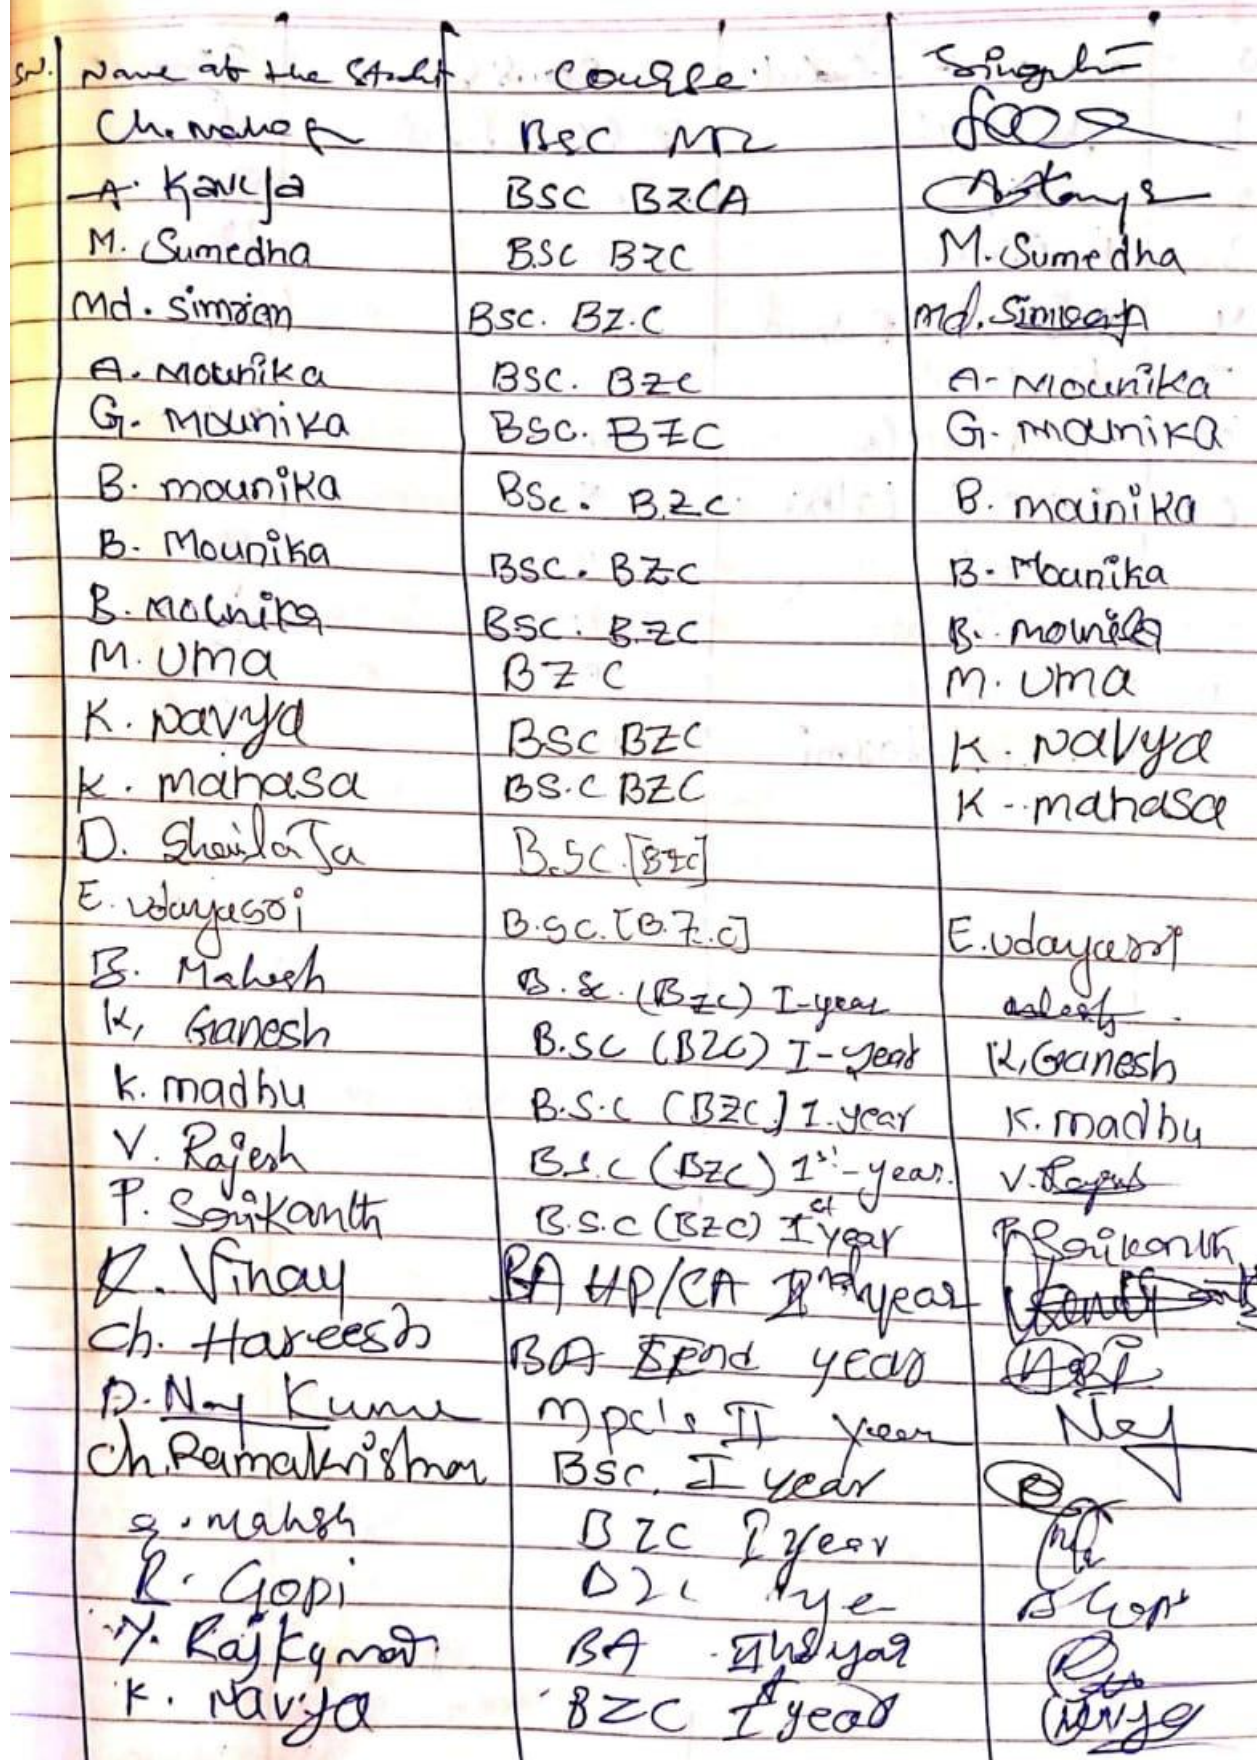 SN. Name of the Student Course
Ch. BSC
A. Kavya BSC BZCA
M. Sumedha BSC BZC M. Sumedha
Md. Simran BSC. BZ.C Md. Simran
A. Mounika BSC. BZC A- Mounika
G. Mounika BSC. BZC G. mounika
B. mounika BSc. B.Z.C. B. mainika
B. Mounika BSC. BZC B. Mounika
B. Mounika BSC. B.ZC B. mounika
M. Uma BZC M. Uma
K. Navya BSC BZC K. Navya
K. manasa BS.C BZC K - manasa
D. ShailaJa B.SC. [BZC]
E. Udayasri B.SC. [B.Z.C] E. Udayasri
B. Mahesh B.Sc. (BZC) I-year
K, Ganesh B.SC (BZC) I-year K, Ganesh
K. madhu B.S.C (BZC) I.year K. madhu
V. Rajesh B.S.C (BZC) 1st-year. V.
P. Srikanth B.S.C (BZC) Ist year P Srikanth
K. Vinay BA HP/CA IInd year
Ch. Hareesh BA year
D. Kumar II year
Ch. Ramakrishna BSC. I year
mahesh BZC I year
R. Gopi Gopi
Y. Rajkumar BA IInd year
K. Navya BZC Ist year Navya